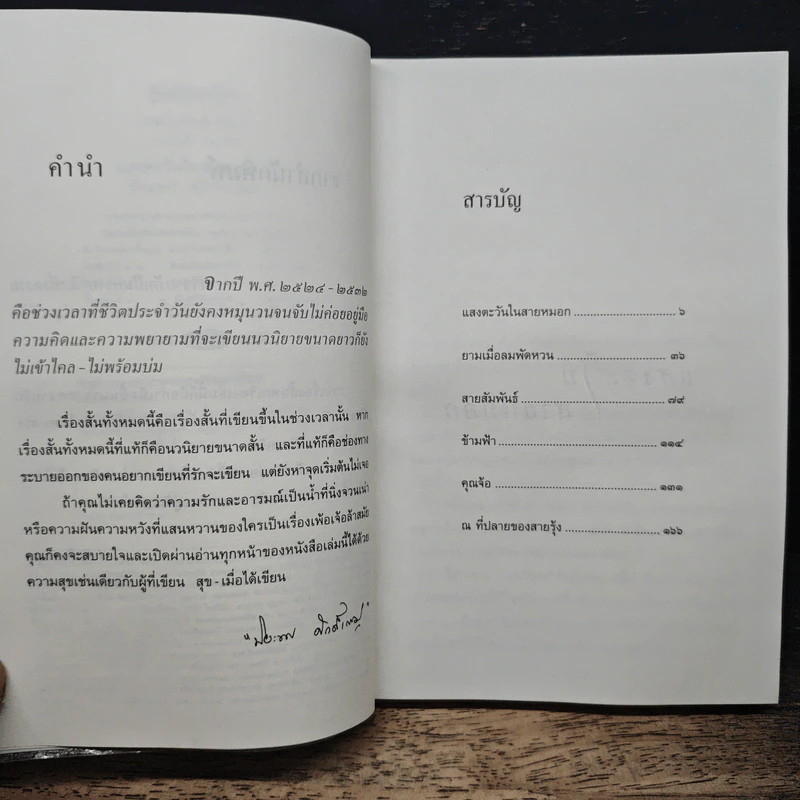 คำนำ
จากปี พ.ศ. ๒๕๒๔ - ๒๕๓๒
คือช่วงเวลาที่ชีวิตประจำวันยังคงหมุนวนจนจับไม่ค่อยอยู่มือ
ความคิดและความพยายามที่จะเขียนนวนิยายขนาดยาวก็ยัง
ไม่เข้าไคล - ไม่พร้อมบ่ม
เรื่องสั้นทั้งหมดนี้คือเรื่องสั้นที่เขียนขึ้นในช่วงเวลานั้น หาก
เรื่องสั้นทั้งหมดนี้ที่แท้ก็คือนวนิยายขนาดสั้น และที่แท้ก็คือช่องทาง
ระบายออกของคนอยากเขียนที่รักจะเขียน แต่ยังหาจุดเริ่มต้นไม่เจอ
ถ้าคุณไม่เคยคิดว่าความรักและอารมณ์เป็นน้ำที่นิ่งจวนเน่า
หรือความฝันความหวังที่แสนหวานของใครเป็นเรื่องเพ้อเจ้อล้าสมัย
คุณก็คงจะสบายใจและเปิดผ่านอ่านทุกหน้าของหนังสือเล่มนี้ได้ด้วย
ความสุขเช่นเดียวกับผู้ที่เขียน สุข - เมื่อได้เขียน
สารบัญ
แสงตะวันในสายหมอก ........................... ๖
ยามเมื่อลมพัดหวน ........................... ๓๖
สายสัมพันธ์ ........................... ๗๙
ข้ามฟ้า ........................... ๑๑๔
คุณจ้อ ........................... ๑๓๑
ณ ที่ปลายของสายรุ้ง ........................... ๑๖๖